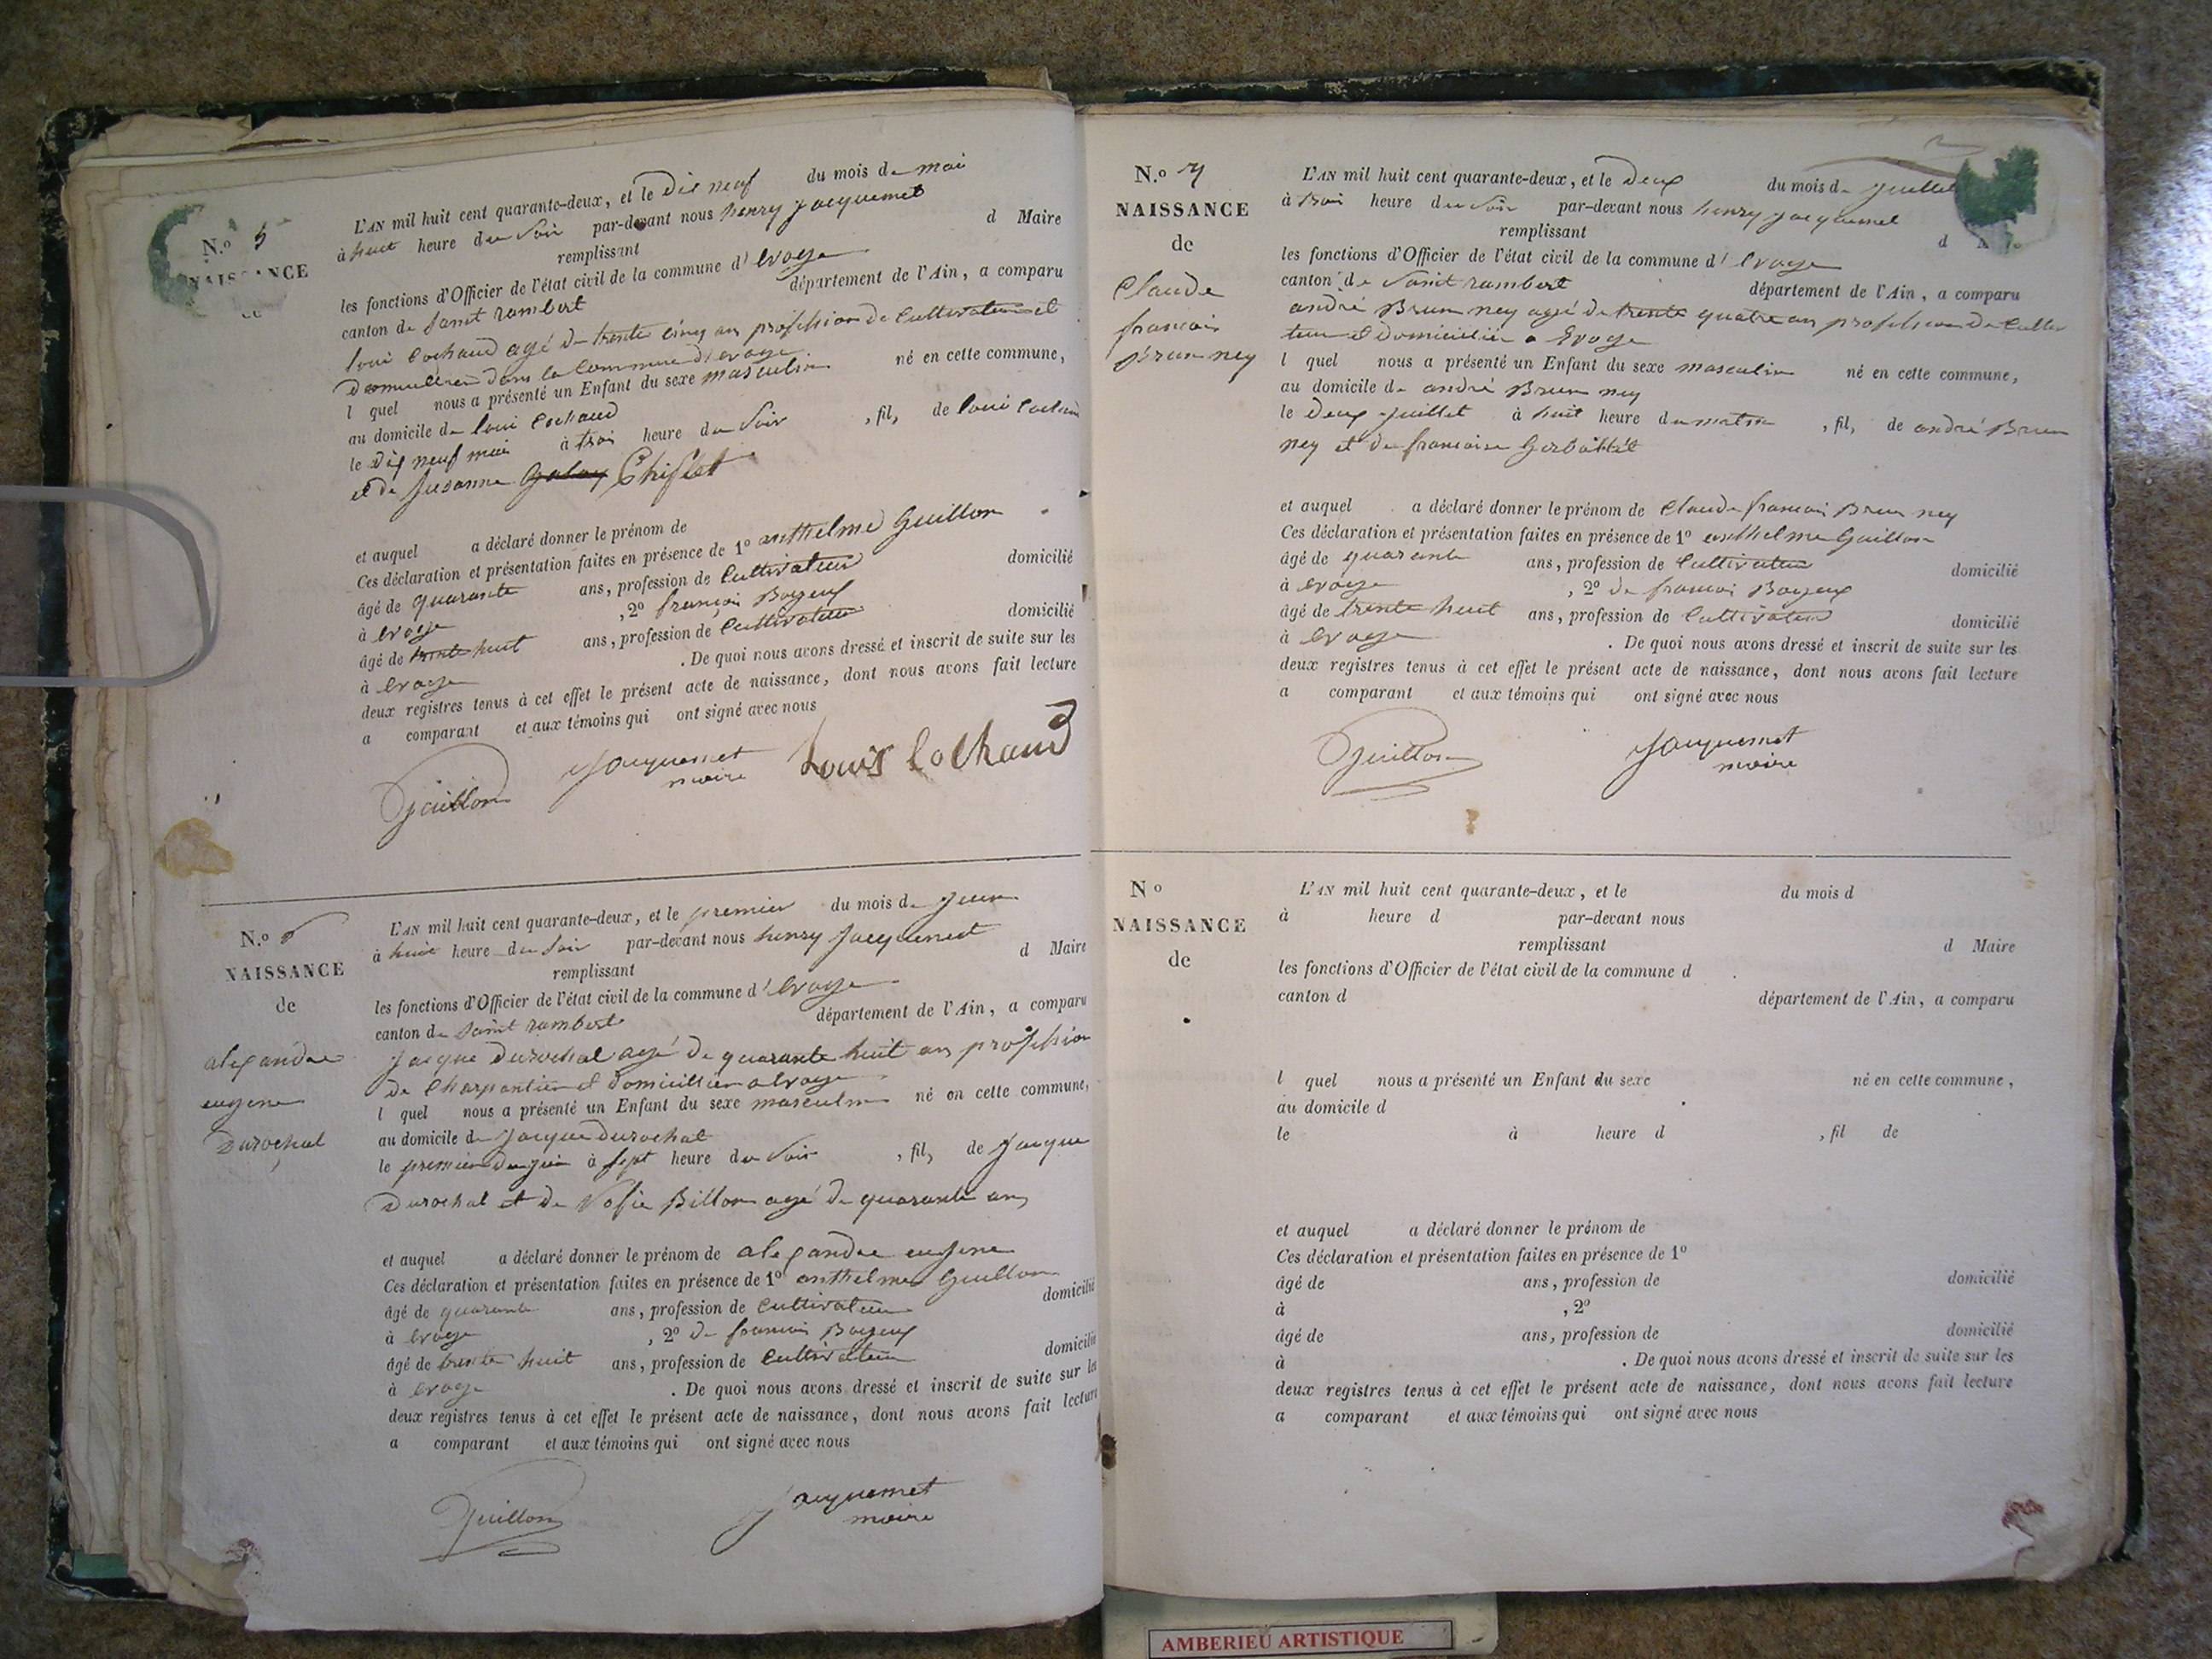 N.o 5
NAISSANCE
L'AN mil huit cent quarante-deux, et le Dix neuf du mois de mai
à huit heure du Soir par-devant nous henry Jacquemet
remplissant d Maire
les fonctions d'Officier de l'état civil de la commune d' Evoge
canton de Saint rambert département de l'Ain, a comparu
loui Cochaud agé de trente cinq an profession de Cultivateur et
Domicillier dans la Commune d'evoge
l quel nous a présenté un Enfant du sexe masculin né en cette commune,
au domicile de loui Cochaud
le Dix neuf mai à troi heure du Soir , fils de loui Cochaud
et de Susanne Chiflet
et auquel a déclaré donner le prénom de
Ces déclaration et présentation faites en présence de 1° anthelme Guillon
âgé de quarante ans, profession de Cultivateur domicilié
à evoge , 2° françoi Bozeux
âgé de trente huit ans, profession de Cultivateur domicilié
à evoge . De quoi nous avons dressé et inscrit de suite sur les
deux registres tenus à cet effet le présent acte de naissance, dont nous avons fait lecture
a comparant et aux témoins qui ont signé avec nous
Guillon Jacquemet maire Louis Cochaud
N.o 6
NAISSANCE
de
alexandre
eugene
Durochat
L'AN mil huit cent quarante-deux, et le premier du mois de Juin
à huit heure du Soir par-devant nous henry Jacquemet
remplissant d Maire
les fonctions d'Officier de l'état civil de la commune d' Evoge
canton de Saint rambert département de l'Ain, a comparu
Jacque Durochat agé de quarante huit an profession
de Charpantier et domicillier a evoge
l quel nous a présenté un Enfant du sexe masculin né en cette commune,
au domicile de Jacque Durochat
le premier du juin à sept heure du Soir , fils de Jacque
Durochat et de Billon agé de quarante ans
et auquel a déclaré donner le prénom de alexandre eugene
Ces déclaration et présentation faites en présence de 1° anthelme Guillon
âgé de quarante ans, profession de Cultivateur domicilié
à evoge , 2° de françoi Bozeux
âgé de trente huit ans, profession de Cultivateur domicilié
à evoge . De quoi nous avons dressé et inscrit de suite sur les
deux registres tenus à cet effet le présent acte de naissance, dont nous avons fait lecture
a comparant et aux témoins qui ont signé avec nous
Guillon Jacquemet maire
N.o 7
NAISSANCE
de
Claude
francois
Brun ney
L'AN mil huit cent quarante-deux, et le Deux du mois de Juillet
à troi heure du Soir par-devant nous henry Jacquemet
remplissant d
les fonctions d'Officier de l'état civil de la commune d' Evoge
canton de Saint rambert département de l'Ain, a comparu
andré Brun ney agé de trente quatre an profession de Culti
teur et domicillier a Evoge
l quel nous a présenté un Enfant du sexe masculin né en cette commune,
au domicile de andré Brun ney
le Deux Juillet à huit heure du matin , fils de andré Brun
ney et de francoise
et auquel a déclaré donner le prénom de Claude francoi Brun ney
Ces déclaration et présentation faites en présence de 1° anthelme Guillon
âgé de quarante ans, profession de Cultivateur domicilié
à evoge , 2° de francoi Bozeux
âgé de trente huit ans, profession de Cultivateur domicilié
à evoge . De quoi nous avons dressé et inscrit de suite sur les
deux registres tenus à cet effet le présent acte de naissance, dont nous avons fait lecture
a comparant et aux témoins qui ont signé avec nous
Guillon Jacquemet maire
N°
NAISSANCE
de
L'AN mil huit cent quarante-deux, et le du mois d
à heure d par-devant nous
remplissant d Maire
les fonctions d'Officier de l'état civil de la commune d
canton d département de l'Ain, a comparu
l quel nous a présenté un Enfant du sexe né en cette commune,
au domicile d
le à heure d , fil de
et auquel a déclaré donner le prénom de
Ces déclaration et présentation faites en présence de 1°
âgé de ans, profession de domicilié
à , 2°
âgé de ans, profession de domicilié
à . De quoi nous avons dressé et inscrit de suite sur les
deux registres tenus à cet effet le présent acte de naissance, dont nous avons fait lecture
a comparant et aux témoins qui ont signé avec nous
AMBERIEU ARTISTIQUE